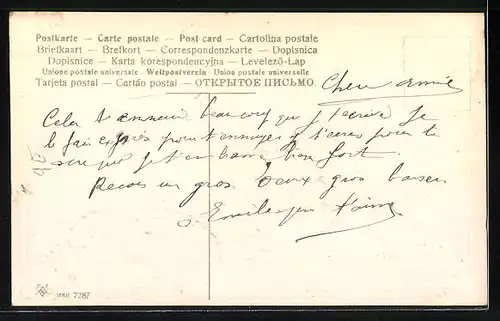 Postkarte — Carte postale — Post card — Cartolina postale
Briefkaart — Brefkort — Correspondenzkarte — Dopisnica
Dopisnice — Karta korespondencyjna — Levelező-Lap
Unione postale universale Weltpostverein Union postale universelle
Tarjeta postal — Cartão postal — ОТКРЫТОЕ ПИСЬМО.
Cher amie
Cela t'ennui beaucoup que j'écrive Je
le fait exprès pour t'ennuyer pour te
dire que je t'embrasse bien fort
Recois un gros deux gros baiser
Emile qui t'aime
Serie 7287